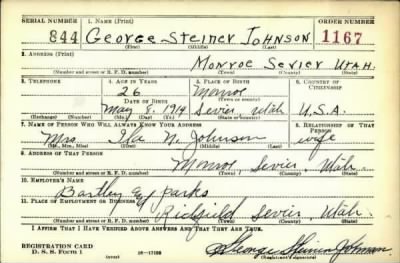 SERIAL NUMBER 1. NAME (Print) ORDER NUMBER
844 George Steiner Johnson 1167
(First) (Middle) (Last)
2. ADDRESS (Print)
Monroe Sevier Utah.
(Number and street or R. F. D. number) (Town) (County) (State)
3. TELEPHONE 4. AGE IN YEARS 5. PLACE OF BIRTH 6. COUNTRY OF CITIZENSHIP
26 Monroe
(Town or county)
DATE OF BIRTH
May 8, 1914 Sevier Utah U.S.A.
(Exchange) (Number) (Mo.) (Day) (Yr.) (State or country)
7. NAME OF PERSON WHO WILL ALWAYS KNOW YOUR ADDRESS 8. RELATIONSHIP OF THAT PERSON
Mrs. Ila N. Johnson wife
(Mr., Mrs., Miss) (First) (Middle) (Last)
9. ADDRESS OF THAT PERSON
Monroe, Sevier, Utah.
(Number and street or R. F. D. number) (Town) (County) (State)
10. EMPLOYER'S NAME
Bartley Parks
11. PLACE OF EMPLOYMENT OR BUSINESS
Richfield Sevier, Utah.
(Number and street or R. F. D. number) (Town) (County) (State)
I AFFIRM THAT I HAVE VERIFIED ABOVE ANSWERS AND THAT THEY ARE TRUE.
REGISTRATION CARD
D. S. S. FORM 1 George Steiner Johnson
(Registrant's signature)